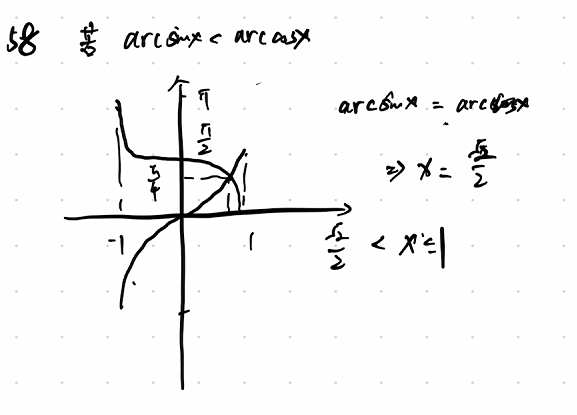 58 若 arcsinx < arccosx
π
π/2
π/4
-1
1
arcsinx = arccosx
⇒ x = √2/2
√2/2 < x ≤ 1